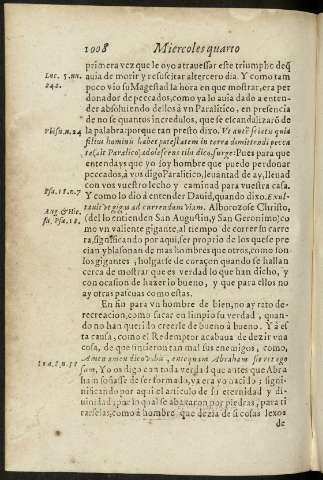 1008 Miercoles quarto
primera vez que le oyo atrauessar este triumphe deq̃
auia de morir y resuscitar altercero dia. Y como tam
Luc. 5. nu. 242.
poco vio su Magestad la hora en que mostrar, era per
donador de peccados, como ya lo auia dado a enten-
der absoluiendo dellos à vn Paralitico, en presencia
de no se quantos incredulos, que se escandalizarõ de
Vbisu. n. 24
la palabra: porque tan presto dixo. Vt autẽ sciatis quia
filius hominis habet potestatem in terra dimittendi pecca
ta (ait Paralico) adolescens tibi dico, surge: Pues para que
entendays que yo soy hombre que puedo perdonar
peccados, à vos digo Paralitico, leuantad de ay, lleuad
con vos vuestro lecho y caminad para vuestra casa.
Psa. 18. n. 7
Y como lo diò à entender Dauid, quando dixo. Exul-
tauit vt gigas ad currendam viam. Alborozose Christo,
Aug. & Hie. su. Psa. 18.
(del lo entienden San Augustin, y San Geronimo) co
mo vn valiente gigante, al tiempo de correr su carre
ra, significando por aqui, ser proprio de los que se pre
cian y blasonan de mas hombres que otros, como son
los gigantes, holgarse de coraçon quando se hallan
cerca de mostrar que es verdad lo que han dicho, y
con ocasion de hazer lo bueno, y que para ellos no
ay otras pascuas como estas.
En fin para vn hombre de bien, no ay rato de
recreacion, como sacar en limpio su verdad, quan-
do no han querido creerle de bueno à bueno. Y à es
ta causa, como el Redemptor acabaua de dezir vna
cosa, de que hizieron tan mal sus enemigos, como,
Amen amen dico vobis, antequam Abraham fieret ego
Ioa. 8. n. 58
sum, Yo os digo con toda verdad que antes que Abra
ham soñasse de ser formado, ya era yo nacido; signi-
nificando por aqui el articulo de su eternidad y di-
uinidad, por lo qual se abaxaron por piedras, para ti
rarselas, como à hombre que dezia de si cosas lexos
de